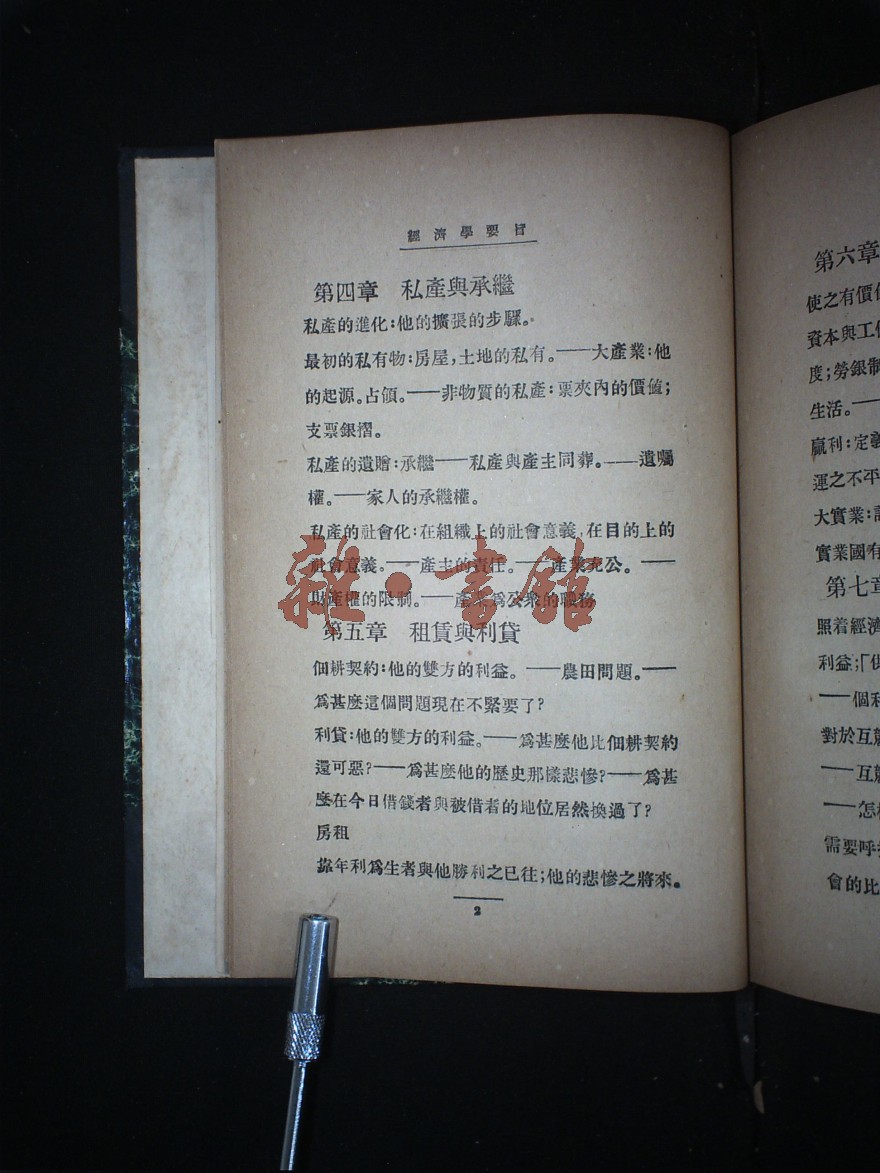 經濟學要旨
第四章　私產與承繼
私產的進化：他的擴張的步驟。
最初的私有物：房屋，土地的私有。——大產業：他
的起源。占領。——非物質的私產：票夾內的價值；
支票銀摺。
私產的遺贈：承繼——私產與產主同葬。——遺囑
權。——家人的承繼權。
私產的社會化：在組織上的社會意義，在目的上的
社會意義。——產主的責任。——產業充公。——
財產權的限制。——產業爲公衆的職務
第五章　租賃與利貸
佃耕契約：他的雙方的利益。——農田問題。——
爲甚麼這個問題現在不緊要了？
利貸：他的雙方的利益。——爲甚麼他比佃耕契約
還可惡？——爲甚麼他的歷史那樣悲慘？——爲甚
麼在今日借錢者與被借者的地位居然換過了？
房租
靠年利爲生者與他勝利之已往；他的悲慘之將來。
2
雜·書館
第六章
使之有價
資本與工
度；勞銀制
生活。——
贏利：定義
運之不平
大實業：
實業國有
第七章
照着經濟
利益；「供
——個
對於互競
——互競
——怎
需要呼
會的比